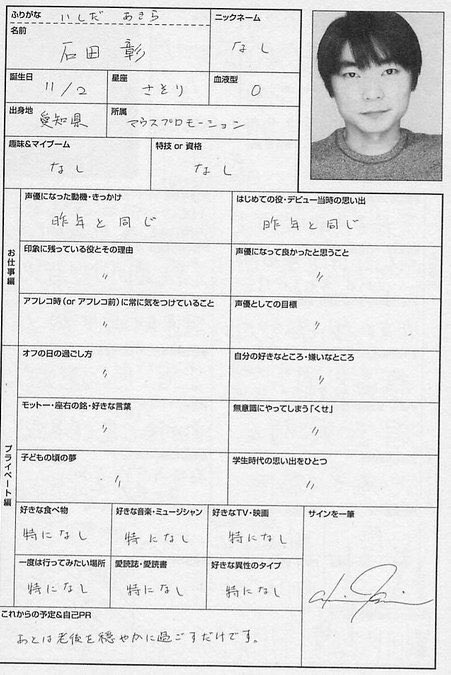 ふりがな いしだ あきら
ニックネーム
名前
石田 彰
なし
誕生日
星座
血液型
11/2
さそり
O
出身地
所属
愛知県
マウスプロモーション
趣味&マイブーム
特技 or 資格
なし
なし
お仕事編
声優になった動機・きっかけ
はじめての役・デビュー当時の思い出
昨年と同じ
昨年と同じ
印象に残っている役とその理由
声優になって良かったと思うこと
〃
〃
アフレコ時(or アフレコ前)に常に気をつけていること
声優としての目標
〃
〃
プライベート編
オフの日の過ごし方
自分の好きなところ・嫌いなところ
〃
〃
モットー・座右の銘・好きな言葉
無意識にやってしまう「くせ」
〃
〃
子どもの頃の夢
学生時代の思い出をひとつ
〃
〃
好きな食べ物
好きな音楽・ミュージシャン
好きなTV・映画
サインを一筆
特になし
特になし
特になし
一度は行ってみたい場所
愛読誌・愛読書
好きな異性のタイプ
特になし
特になし
特になし
これからの予定&自己PR
あとは老後を穏やかに過ごすだけです。